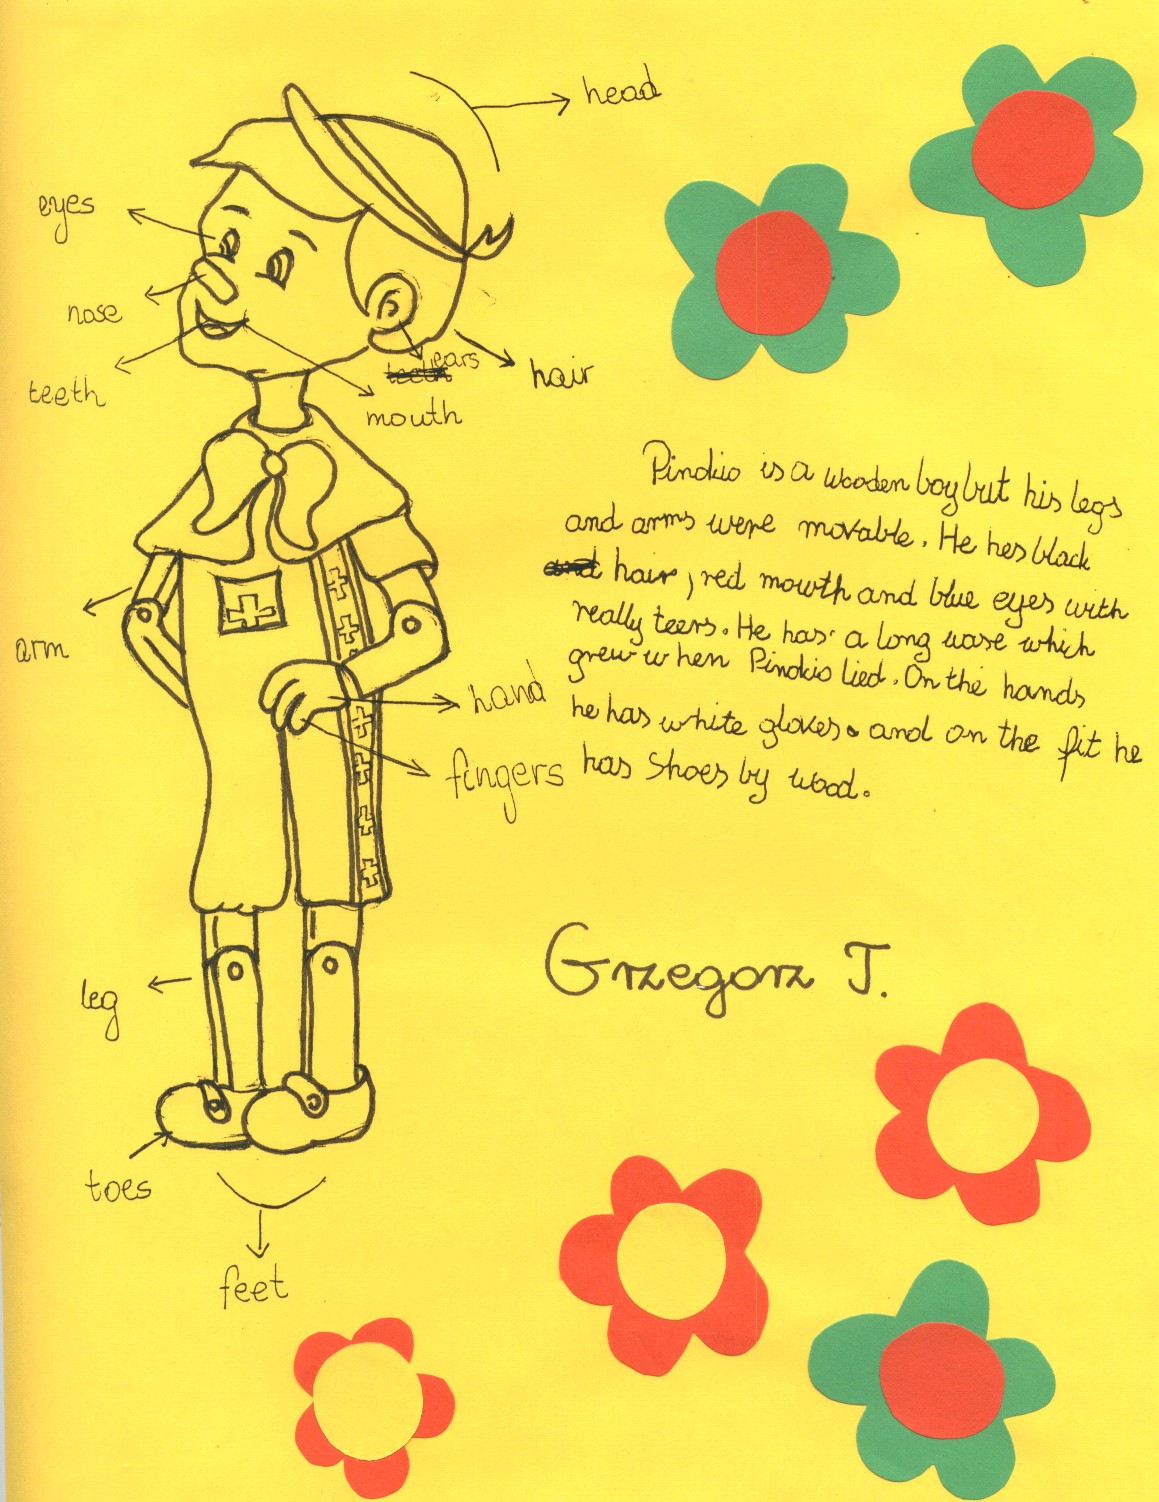 head
eyes
nose
teeth
ears
hair
mouth
Pinokio is a wooden boy but his legs
and arms were movable. He hes black
hair, red mowth and blue eyes with
really teers. He has a long nose which
grew when Pinokio lied. On the hands
he has white gloves. and on the fit he
has shoes by wood.
arm
hand
fingers
Grzegorz T.
leg
toes
feet